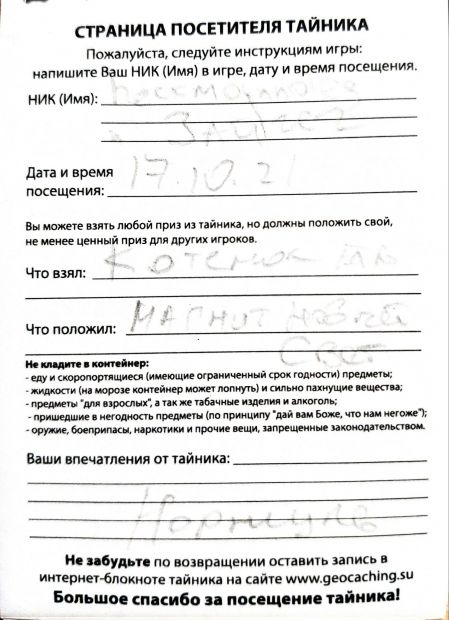 СТРАНИЦА ПОСЕТИТЕЛЯ ТАЙНИКА
Пожалуйста, следуйте инструкциям игры:
напишите Ваш НИК (Имя) в игре, дату и время посещения.
НИК (Имя):
Дата и время
посещения: 17.10.21
Вы можете взять любой приз из тайника, но должны положить свой,
не менее ценный приз для других игроков.
Что взял: Котенок
Что положил: Магнит новый
Свет
Не кладите в контейнер:
- еду и скоропортящиеся (имеющие ограниченный срок годности) предметы;
- жидкости (на морозе контейнер может лопнуть) и сильно пахнущие вещества;
- предметы "для взрослых", а так же табачные изделия и алкоголь;
- пришедшие в негодность предметы (по принципу "дай вам Боже, что нам негоже");
- оружие, боеприпасы, наркотики и прочие вещи, запрещенные законодательством.
Ваши впечатления от тайника:
Не забудьте по возвращении оставить запись в
интернет-блокноте тайника на сайте www.geocaching.su
Большое спасибо за посещение тайника!